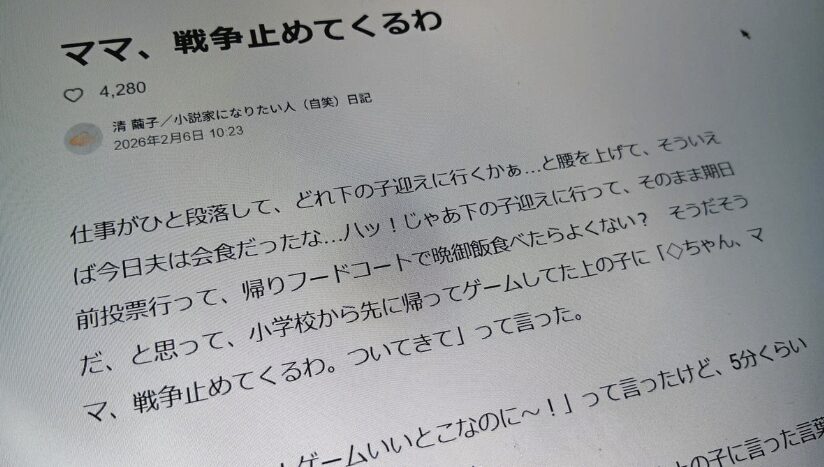 ママ、戦争止めてくるわ
4,280
清 繭子／小説家になりたい人（自笑）日記
2026年2月6日 10:23
仕事がひと段落して、どれ下の子迎えに行くかぁ…と腰を上げて、そういえ
ば今日夫は会食だったな…ハッ！じゃあ下の子迎えに行って、そのまま期日
前投票行って、帰りフードコートで晩御飯食べたらよくない？　そうだそう
だ、と思って、小学校から先に帰ってゲームしてた上の子に「◇ちゃん、マ
マ、戦争止めてくるわ。ついてきて」って言った。
ゲームいいとこなのに〜！」って言ったけど、5分くらい
上の子に言った言葉